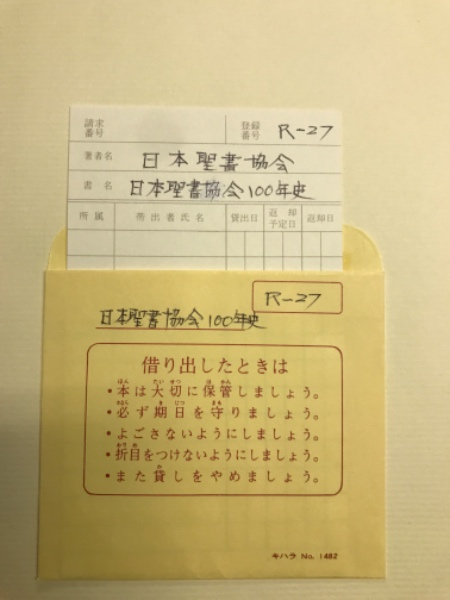 請求番号 登録番号 R-27
著者名 日本聖書協会
書名 日本聖書協会100年史
所属 帯出者氏名 貸出日 返却予定日 返却日
R-27
日本聖書協会100年史
借り出したときは
・本は大切に保管しましょう。
・必ず期日を守りましょう。
・よごさないようにしましょう。
・折目をつけないようにしましょう。
・また貸しをやめましょう。
キハラ No. 1482